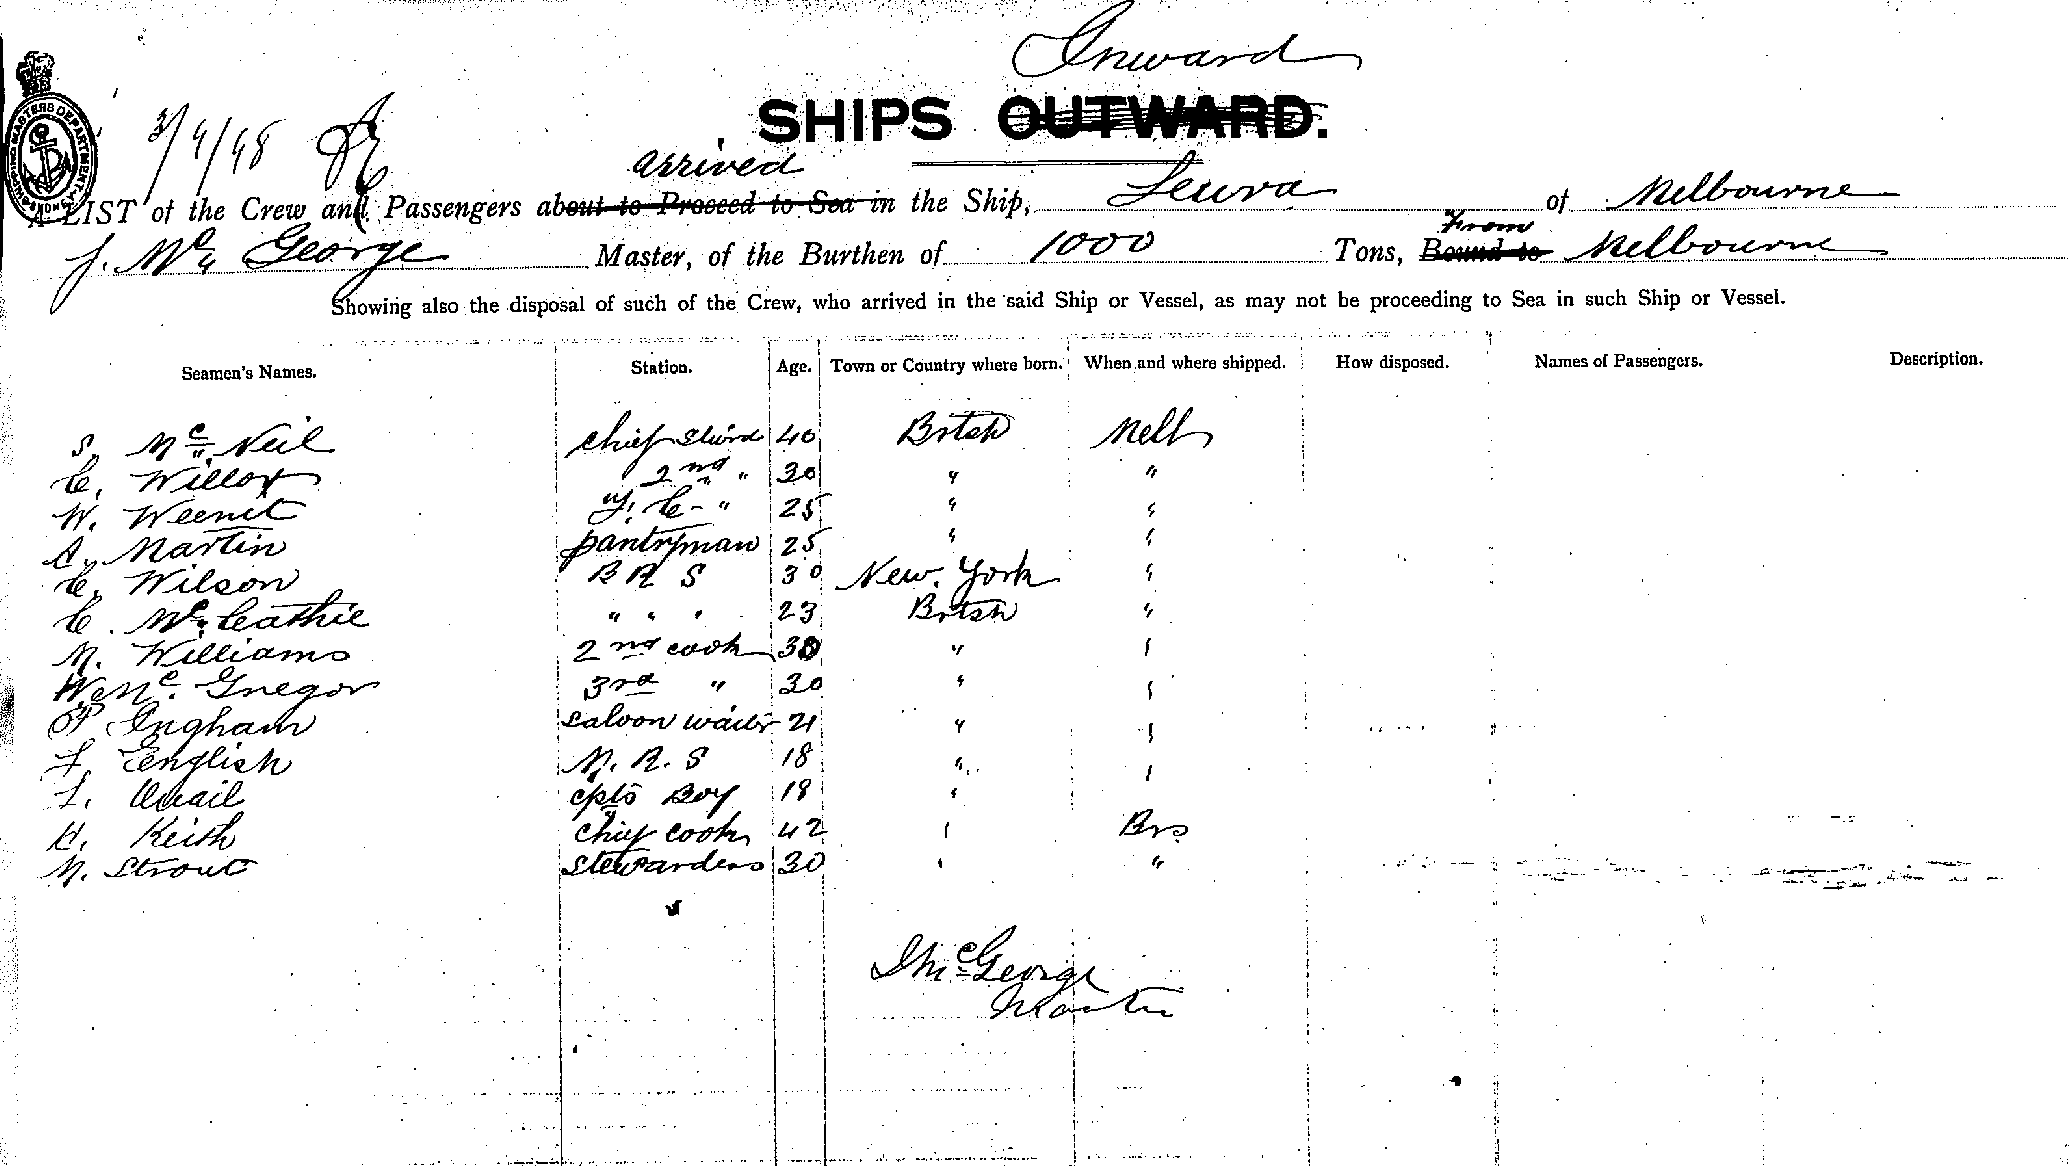 Inward
SHIPS OUTWARD.
3/4/98
arrived
A LIST of the Crew and Passengers about to Proceed to Sea in the Ship, Leura of Melbourne
From
J. Mc George Master, of the Burthen of 1000 Tons, Bound to Melbourne
Showing also the disposal of such of the Crew, who arrived in the said Ship or Vessel, as may not be proceeding to Sea in such Ship or Vessel.
Seamen's Names. Station. Age. Town or Country where born. When and where shipped. How disposed. Names of Passengers. Description.
S. Mc Neil chief 40 Britsh Melb
C. Willox 2nd " 30 " "
W. Weenet F. C - " 25 " "
A. Martin pantryman 25 " "
C. Wilson B R S 30 New York "
C. Mc Cathie " " " 23 Britsh "
M. Williams 2nd cook 30 " "
W. Mc Gregor 3rd " 30 " "
P Ingham saloon waiter 21 " "
F. English M. R. S 18 " "
F. Quail cpts Boy 18 " "
H. Keith chief cook 42 " Brs
M. Strout stewardess 30 " "
J McGeorge
Master